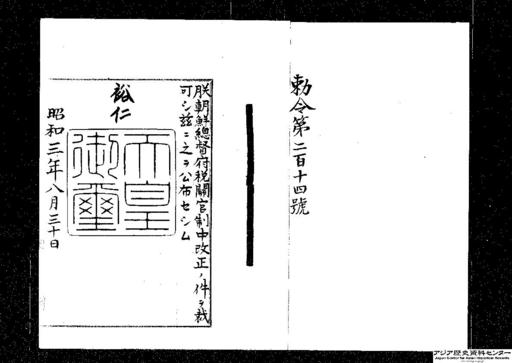 勅令第二百十四號
朕朝鮮總督府稅關官制中改正ノ件ヲ裁
可シ茲ニ之ヲ公布セシム
裕仁
天皇
御璽
昭和三年八月三十日
アジア歴史資料センター
Japan Center for Asian Historical Records